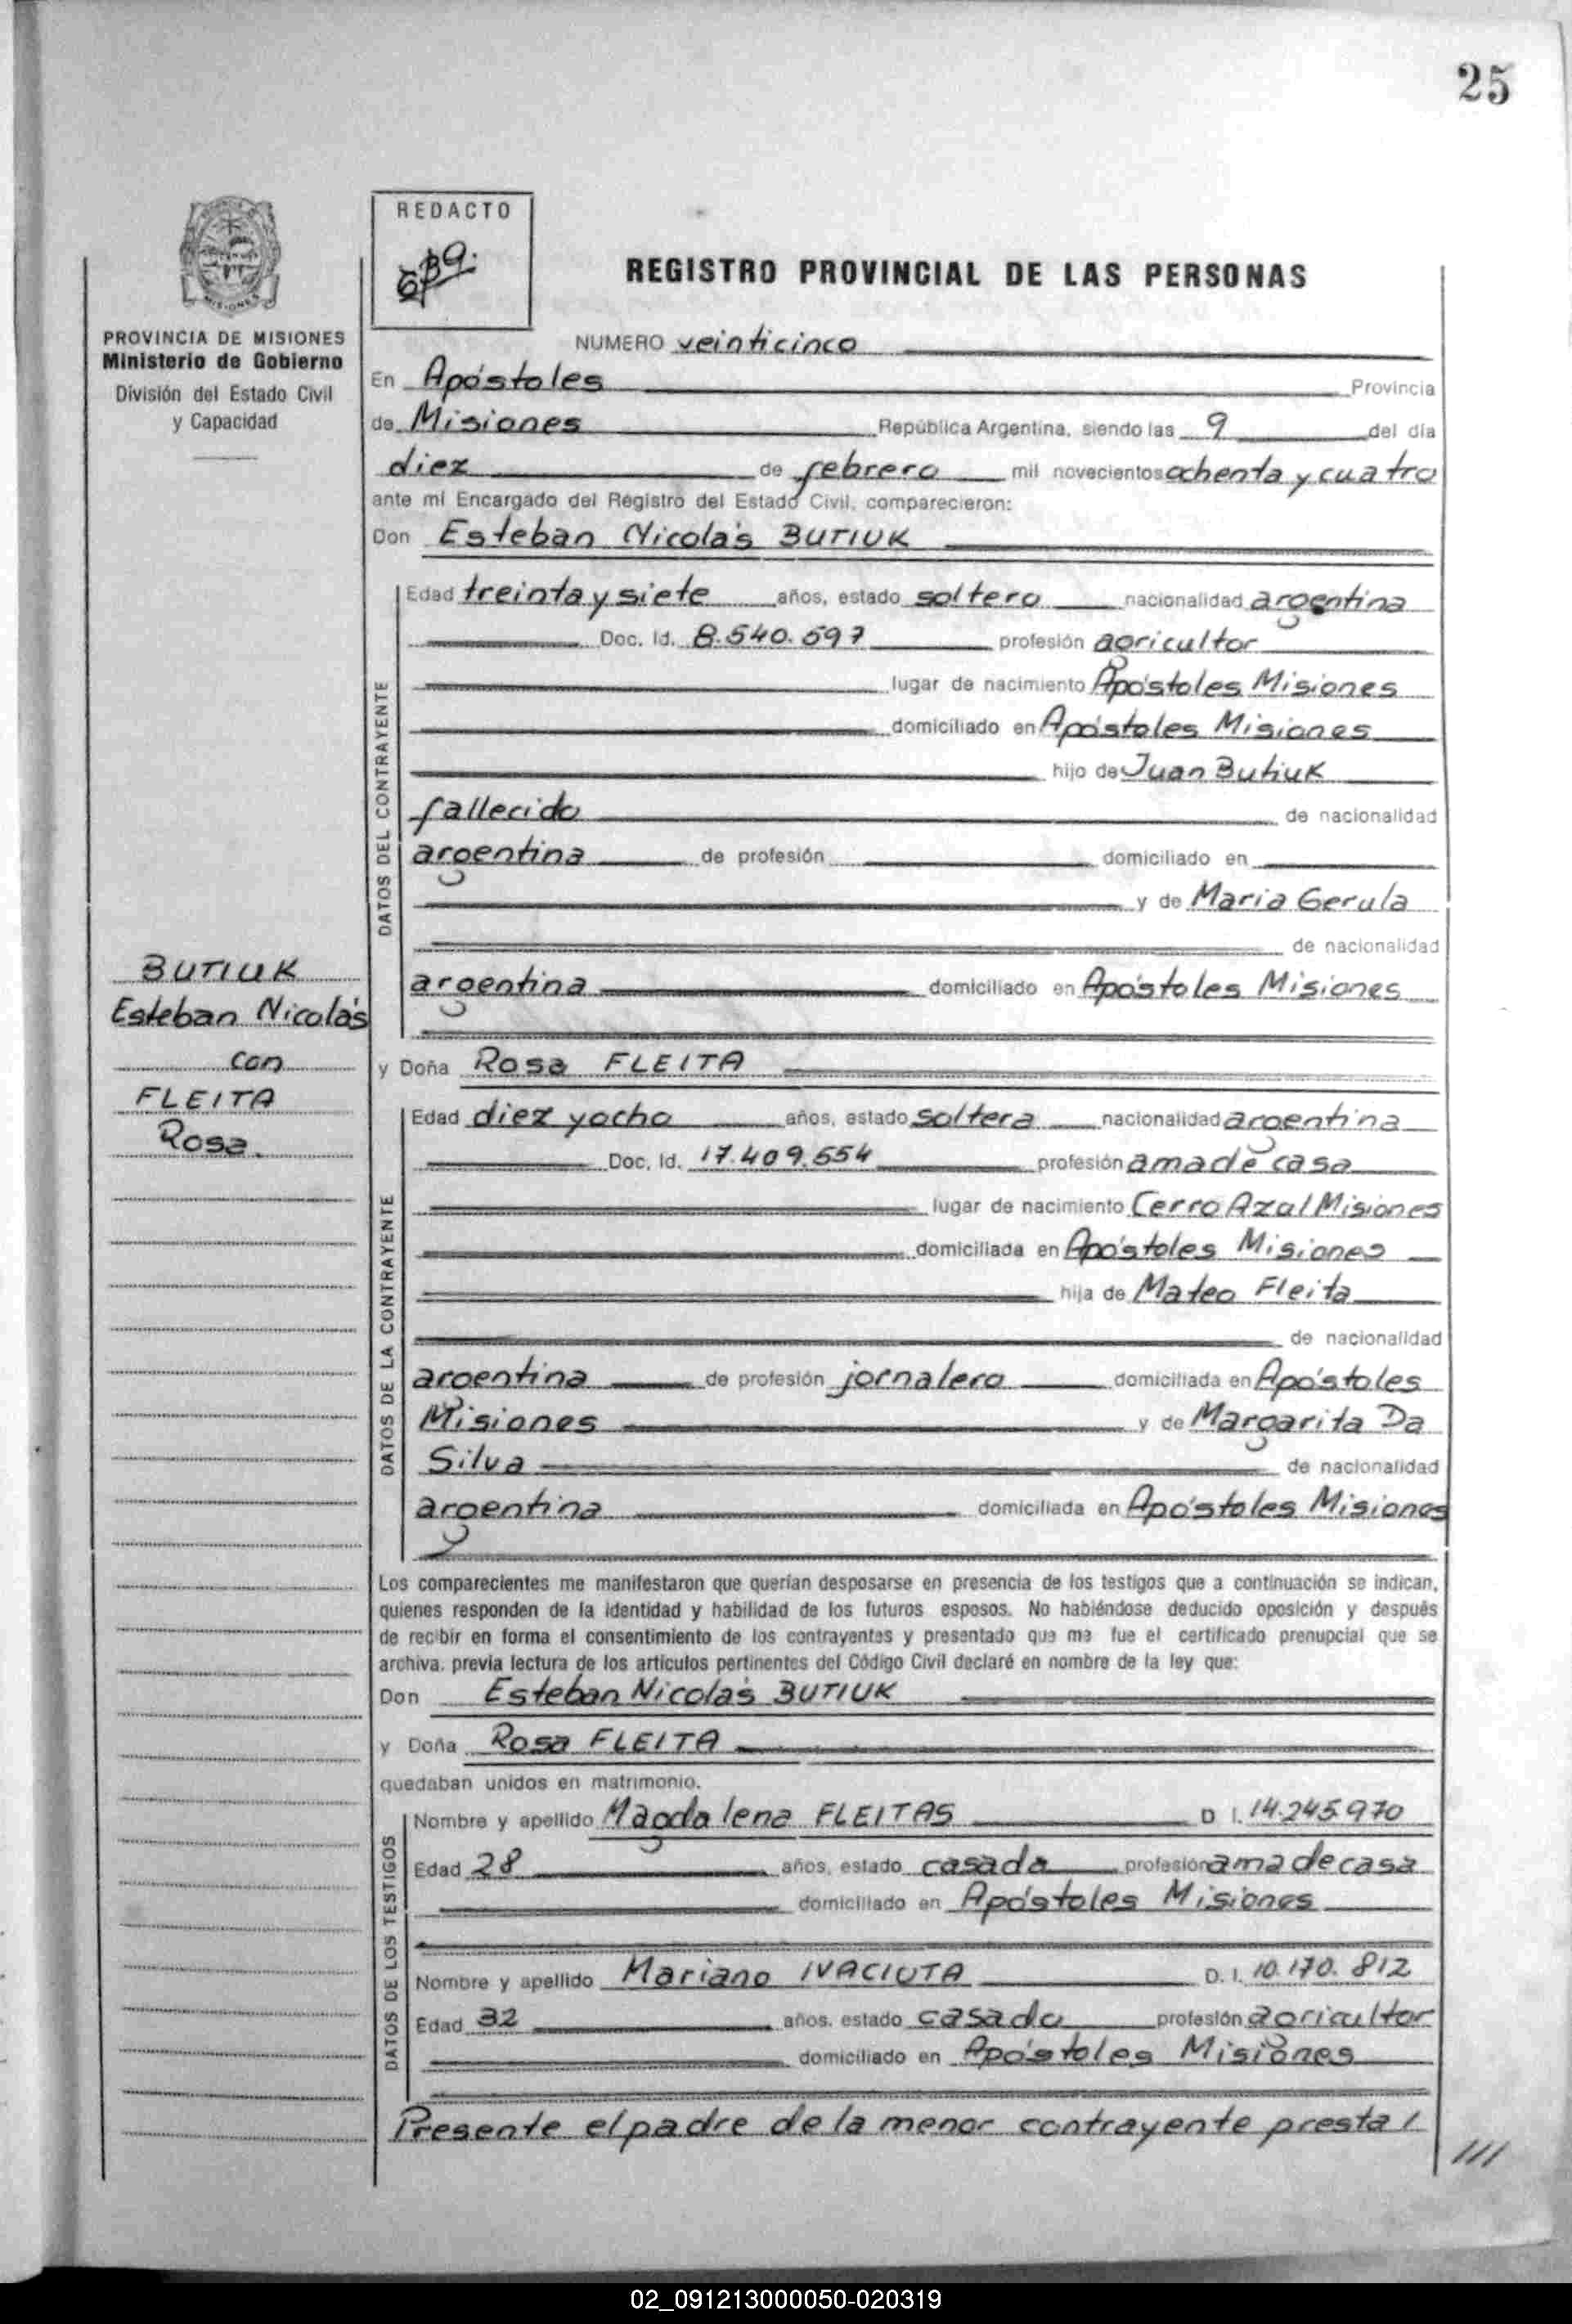 25
REDACTO
REGISTRO PROVINCIAL DE LAS PERSONAS
PROVINCIA DE MISIONES
Ministerio de Gobierno
División del Estado Civil
y Capacidad
NUMERO veinticinco
En Apóstoles Provincia
de Misiones República Argentina, siendo las 9 del día
diez de febrero mil novecientos ochenta y cuatro
ante mi Encargado del Registro del Estado Civil, comparecieron:
Don Esteban Nicolás BUTIUK
DATOS DEL CONTRAYENTE
Edad treinta y siete años, estado soltero nacionalidad argentina
Doc. Id. 8.540.597 profesión agricultor
lugar de nacimiento Apóstoles Misiones
domiciliado en Apóstoles Misiones
hijo de Juan Butiuk
fallecido de nacionalidad
argentina de profesión domiciliado en
y de Maria Gerula
de nacionalidad
argentina domiciliado en Apóstoles Misiones
BUTIUK
Esteban Nicolás
con
FLEITA
Rosa.
y Doña Rosa FLEITA
DATOS DE LA CONTRAYENTE
Edad diez y ocho años, estado soltera nacionalidad argentina
Doc. Id. 17.409.554 profesión ama de casa
lugar de nacimiento Cerro Azul Misiones
domiciliada en Apóstoles Misiones
hija de Mateo Fleita
de nacionalidad
argentina de profesión jornalero domiciliada en Apóstoles
Misiones y de Margarita Da
Silva de nacionalidad
argentina domiciliada en Apóstoles Misiones
Los comparecientes me manifestaron que querían desposarse en presencia de los testigos que a continuación se indican,
quienes responden de la identidad y habilidad de los futuros esposos. No habiéndose deducido oposición y después
de recibir en forma el consentimiento de los contrayentes y presentado que me fue el certificado prenupcial que se
archiva. previa lectura de los artículos pertinentes del Código Civil declaré en nombre de la ley que:
Don Esteban Nicolás BUTIUK
y Doña Rosa FLEITA
quedaban unidos en matrimonio.
DATOS DE LOS TESTIGOS
Nombre y apellido Magdalena FLEITAS D I. 14.245.970
Edad 28 años, estado casada profesión ama de casa
domiciliado en Apóstoles Misiones
Nombre y apellido Mariano IVACIUTA D. I. 10.170.812
Edad 32 años. estado casado profesión agricultor
domiciliado en Apóstoles Misiones
Presente el padre de la menor contrayente presta /
///
02_091213000050-020319